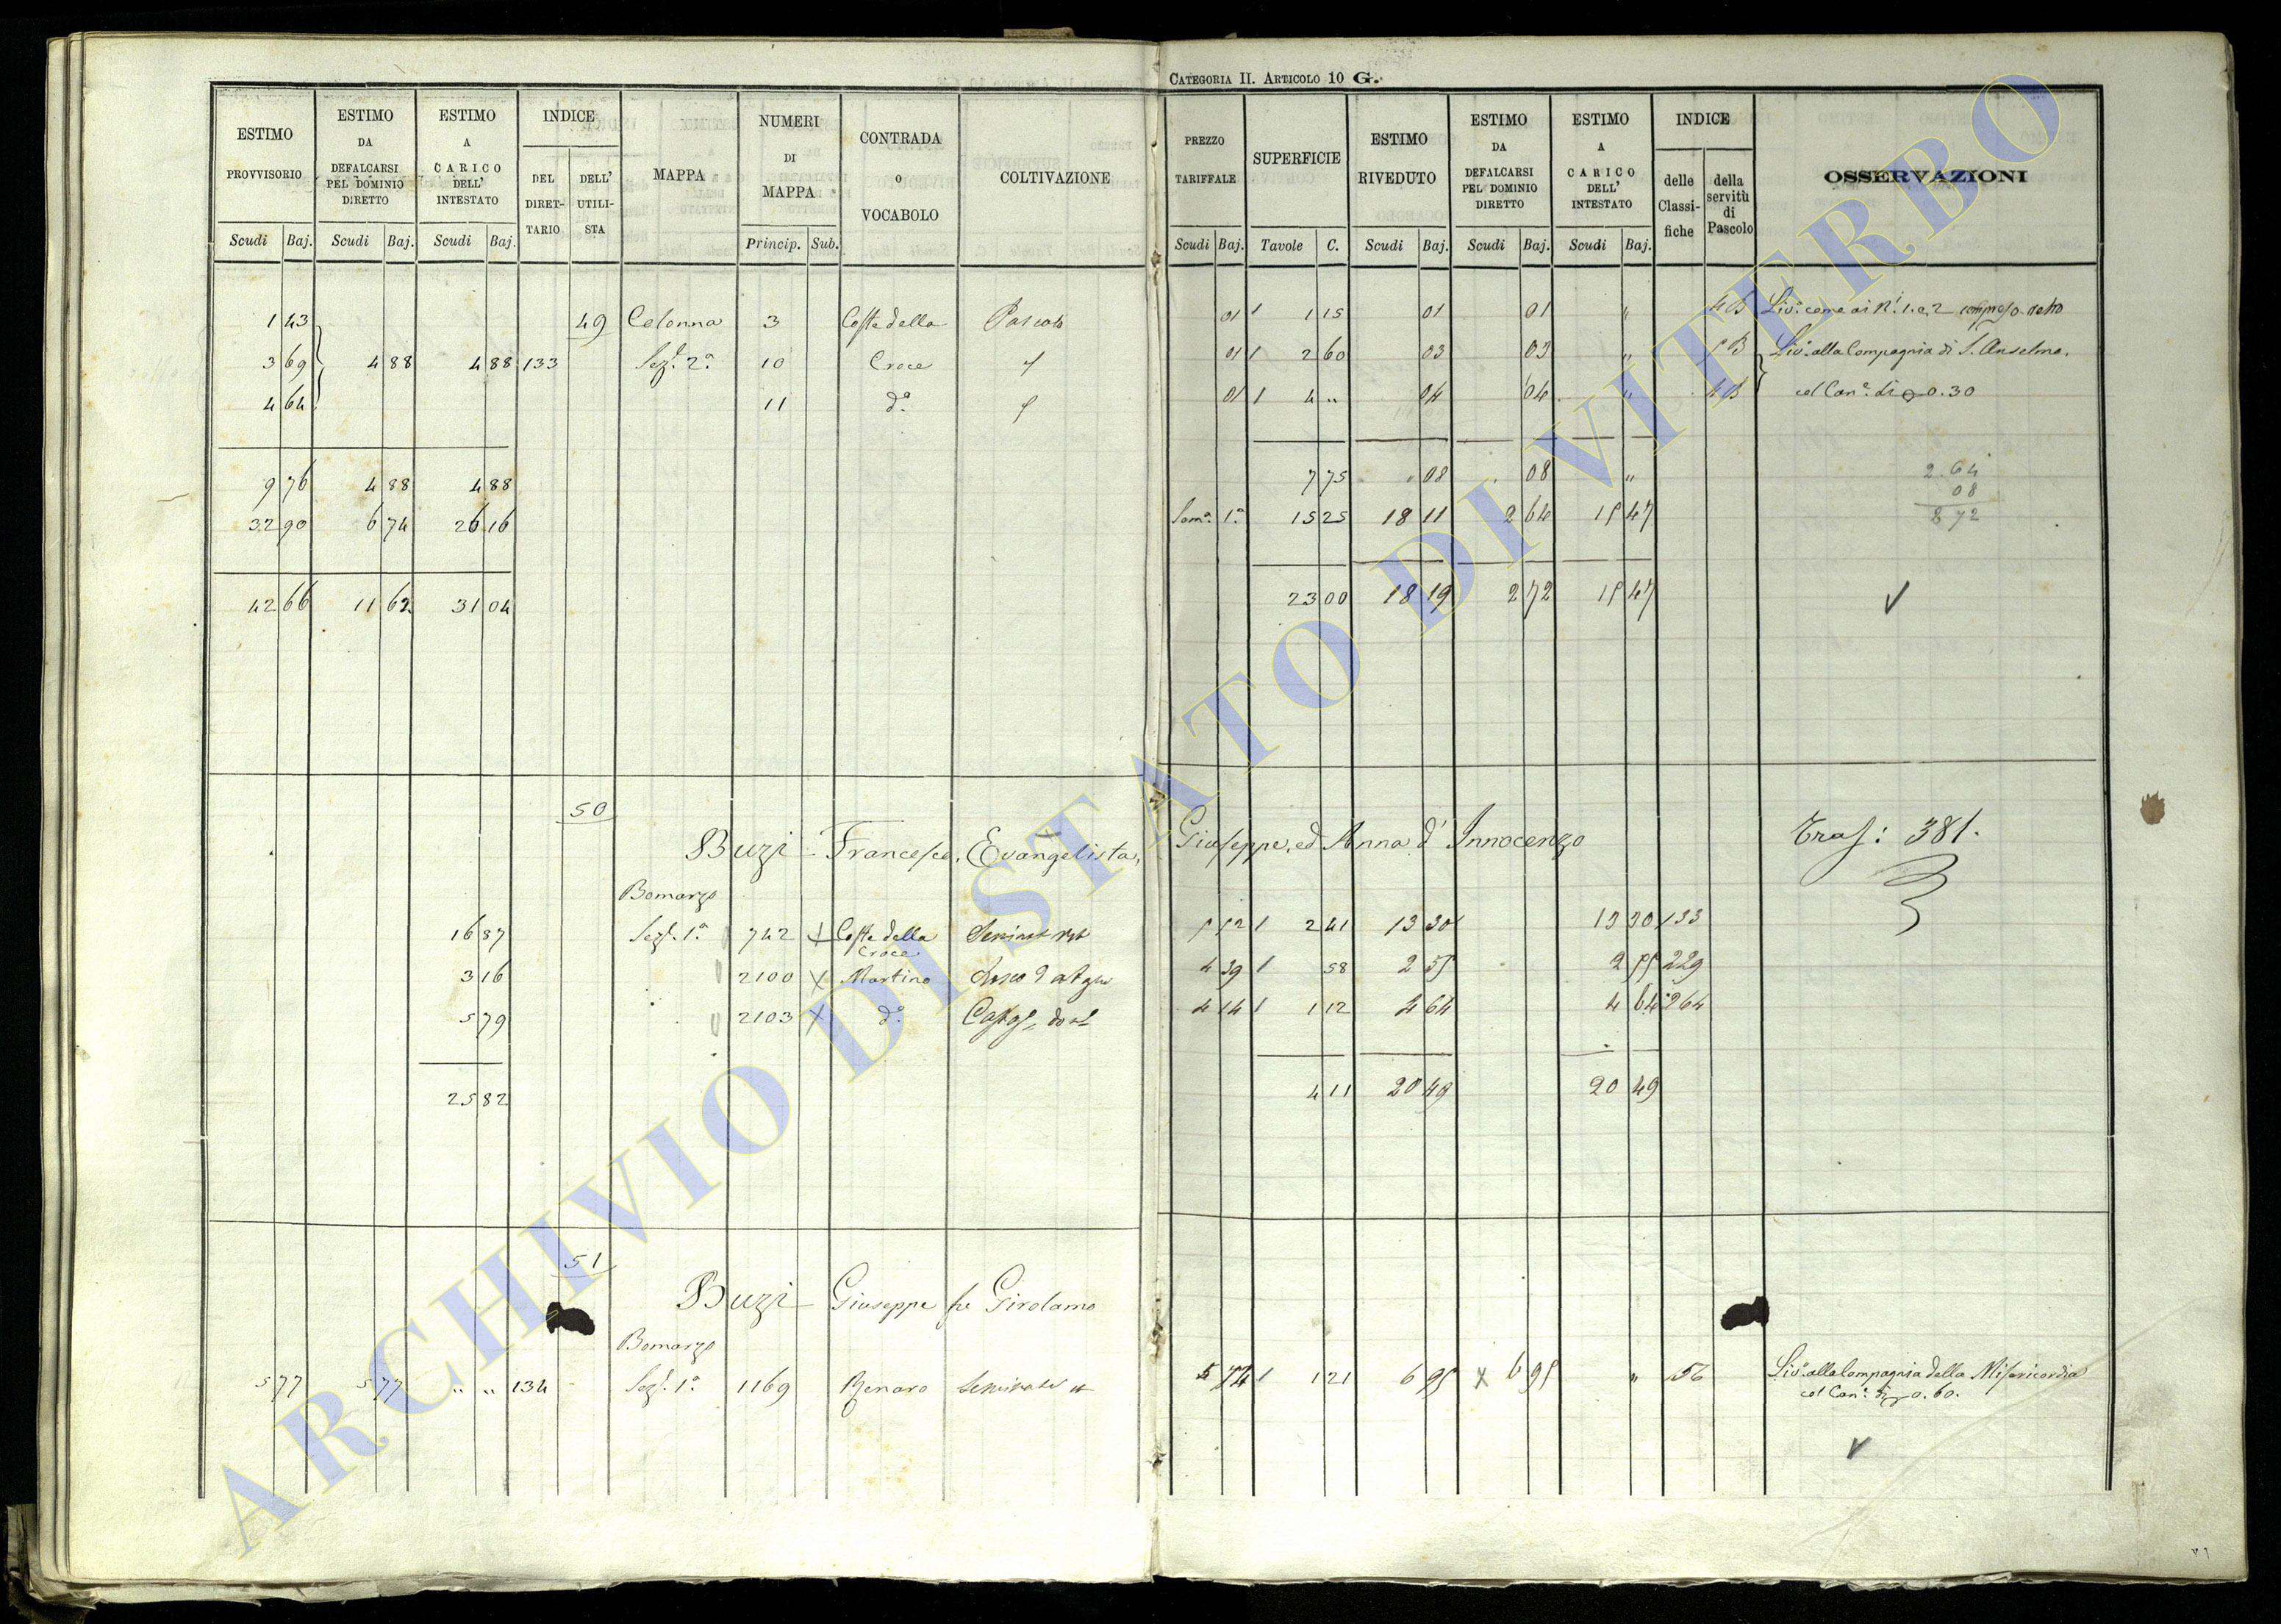 CATEGORIA II. ARTICOLO 10 G.
ESTIMO PROVVISORIO | ESTIMO DA DEFALCARSI PEL DOMINIO DIRETTO | ESTIMO A CARICO DELL' INTESTATO | INDICE | MAPPA | NUMERI DI MAPPA | CONTRADA O VOCABOLO | COLTIVAZIONE | PREZZO TARIFFALE | SUPERFICIE | ESTIMO RIVEDUTO | ESTIMO DA DEFALCARSI PEL DOMINIO DIRETTO | ESTIMO A CARICO DELL' INTESTATO | INDICE | OSSERVAZIONI
DEL DIRETTARIO | DELL' UTILISTA | delle Classifiche | della servitù di Pascolo
Scudi Baj. | Scudi Baj. | Scudi Baj. | Princip. | Sub. | Scudi Baj. | Tavole C. | Scudi Baj. | Scudi Baj. | Scudi Baj.
1 43 | 49 | Colonna | 3 | Coste della | Pascolo | 01 1 | 1 15 | 01 | 01 | " | 4B | Liv.º come ai Nⁱ. 1. e, 2
3 69 | 4 88 | 4 88 | 133 | Sez.ᵉ 2.ª | 10 | Croce | 01 1 | 2 60 | 03 | 03 | " | 5B | Liv.º alla Compagnia di S. Anselmo.
4 64 | 11 | d.ª | 01 1 | 4 " | 04 | 04 | " | 4B | col Can.ᵉ di 0.30
9 76 | 4 88 | 4 88 | 7 75 | 08 | 08 | " | 2.64
08
32 90 | 6 74 | 26 16 | Som.ª 1.ª | 15 25 | 18 11 | 2 64 | 15 47 | 8 72
42 66 | 11 62 | 31 04 | 23 00 | 18 19 | 2 72 | 15 47 | V
50
Buzi - Francesco, Evangelista, Giuseppe, ed Anna d' Innocenzo | Tras: 381.
Bomarzo
16 87 | Sez.ᵉ 1.ª | 742 | X | Coste della Croce | 5 52 1 | 2 41 | 13 30 | 13 30 | 133
3 16 | 2100 | X | Martino | 4 39 1 | 58 | 2 55 | 2 55 | 229
5 79 | 2103 | X | d.º | 4 14 1 | 1 12 | 4 64 | 4 64 | 264
25 82 | 4 11 | 20 49 | 20 49
51
Buzi - Giuseppe fu Girolamo
Bomarzo
5 77 | 5 77 | " " | 134 | Sez.ᵉ 1.ª | 1169 | 5 74 1 | 1 21 | 6 95 | X 6 95 | " | 156 | Liv.º alla Compagnia della Misericordia
col Can.ᵉ di 0.60.
V
ARCHIVIO DI STATO DI VITERBO